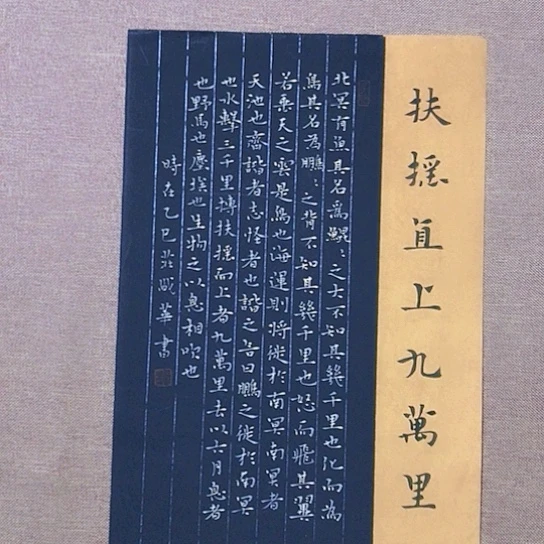 扶搖直上九萬里
北冥有魚其名為鯤:之大不知其幾千里也化而為
鳥其名為鵬:之背不知其幾千里也怒而飛其翼
若垂天之雲是鳥也海運則將徙於南冥南冥者
天池也齊諧者志怪者也諧之言曰鵬之徙於南冥
也水擊三千里摶扶搖而上者九萬里去以六月息者
也野馬也塵埃也生物之以息相吹也
時在乙巳華書